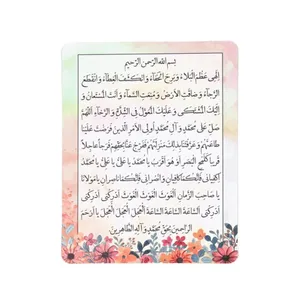 بسم الله الرحمن الرحیم
الهی عظم البلاء و برح الخفاء و انکشف الغطاء و انقطع
الرجاء و ضاقت الارض و منعت السماء و انت المستعان و
الیک المشتکی و علیک المعول فی الشدة و الرخاء اللهم
صل علی محمد و آل محمد اولی الامر الذین فرضت علینا
طاعتهم و عرفتنا بذلک منزلتهم ففرج عنا بحقهم فرجا عاجلا
قریبا کلمح البصر او هو اقرب یا محمد یا علی یا علی یا محمد
اکفیانی فانکما کافیان و انصرانی فانکما ناصران یا مولانا
یا صاحب الزمان الغوث الغوث الغوث ادرکنی ادرکنی
ادرکنی الساعة الساعة الساعة العجل العجل العجل یا ارحم
الراحمین بحق محمد و آله الطاهرین